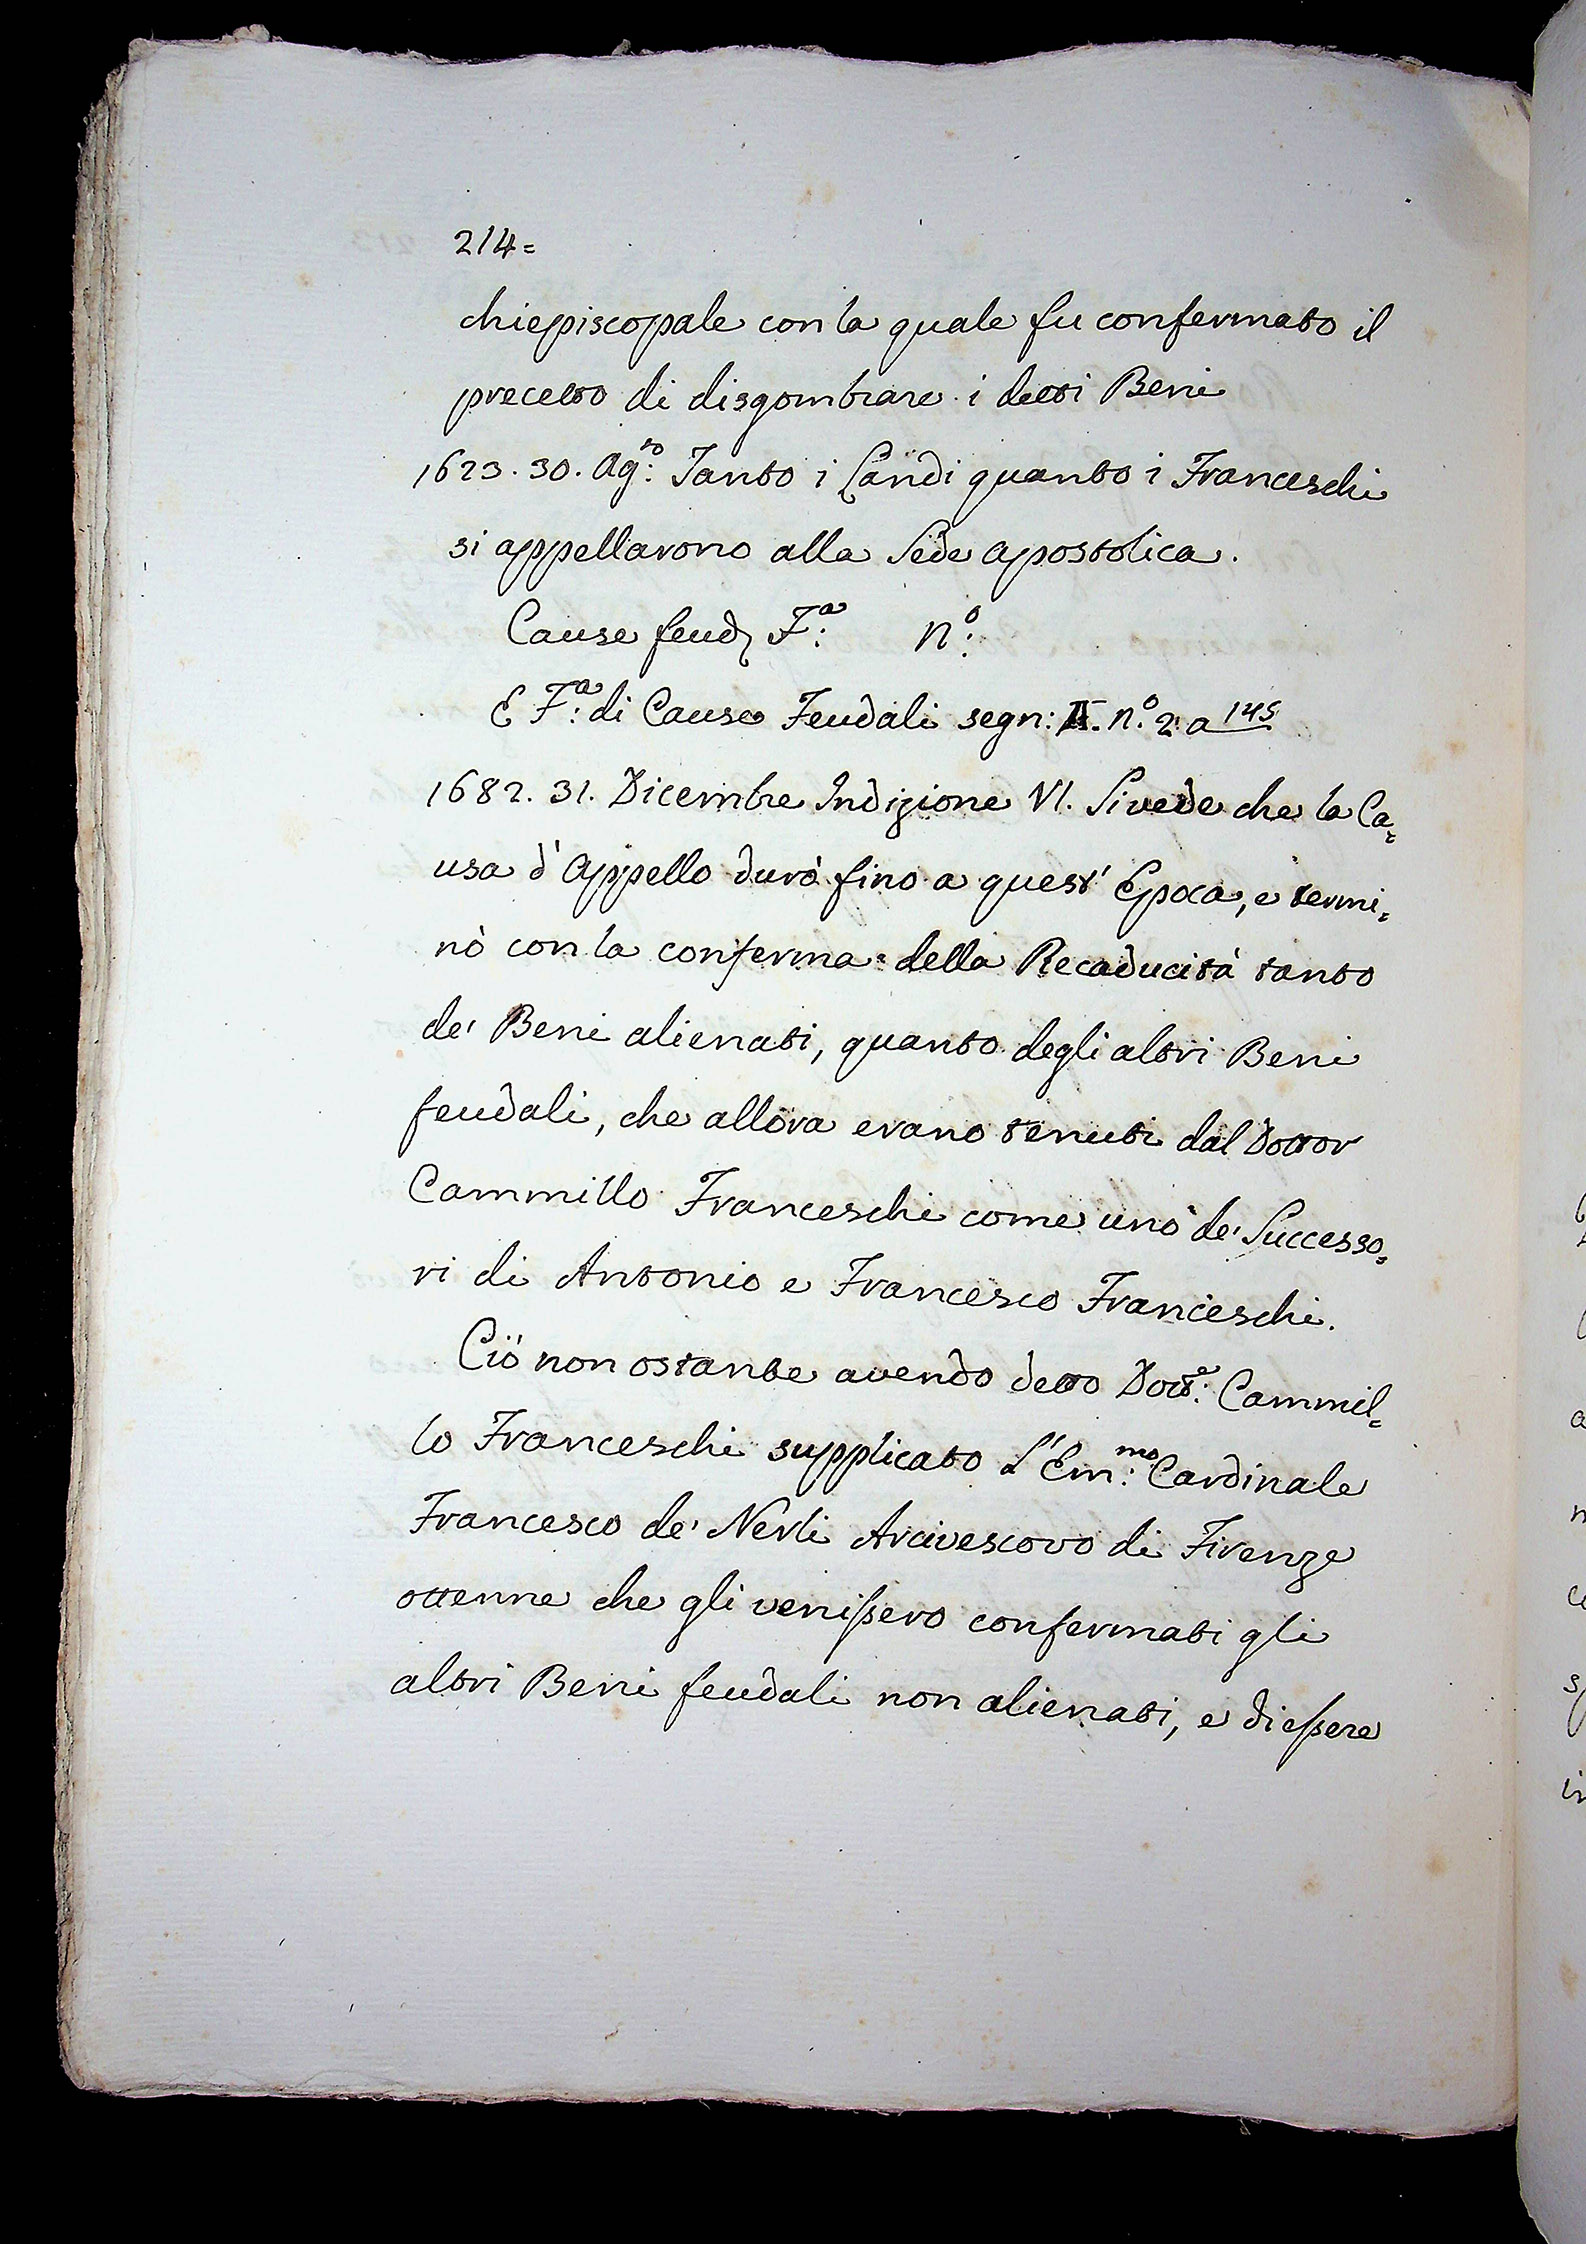 214=
chiepiscopale con la quale fu confermato il
precetto di disgombrare i detti Beni
1623. 30. Ag:to Tanto i Landi quanto i Franceschi
si appellarono alla Sede apostolica.
Cause feud. F:a n:o
E F:a di Cause Feudali segn: n:o 2. a 145
1682. 31. Dicembre Indizione VI. Si vede che la Ca=
usa d'Appello durò fino a quest'Epoca, e termi=
nò con la conferma della Recaducità tanto
de' Beni alienati, quanto degli altri Beni
feudali, che allora erano tenuti dal Dottor
Cammillo Franceschi come uno de' Successo=
ri di Antonio e Francesco Franceschi.
Ciò non ostante avendo detto Dott:e Cammil=
lo Franceschi supplicato L'Em:mo Cardinale
Francesco de' Nerli Arcivescovo di Firenze
ottenne che gli venissero confermati gli
altri Beni feudali non alienati, e di essere